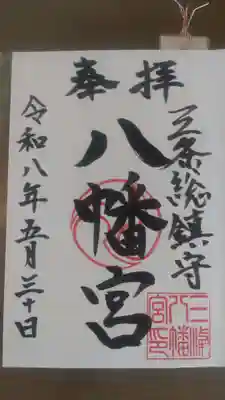 奉拝
三条総鎮守
八幡宮
令和八年五月三十日
三条八幡宮印